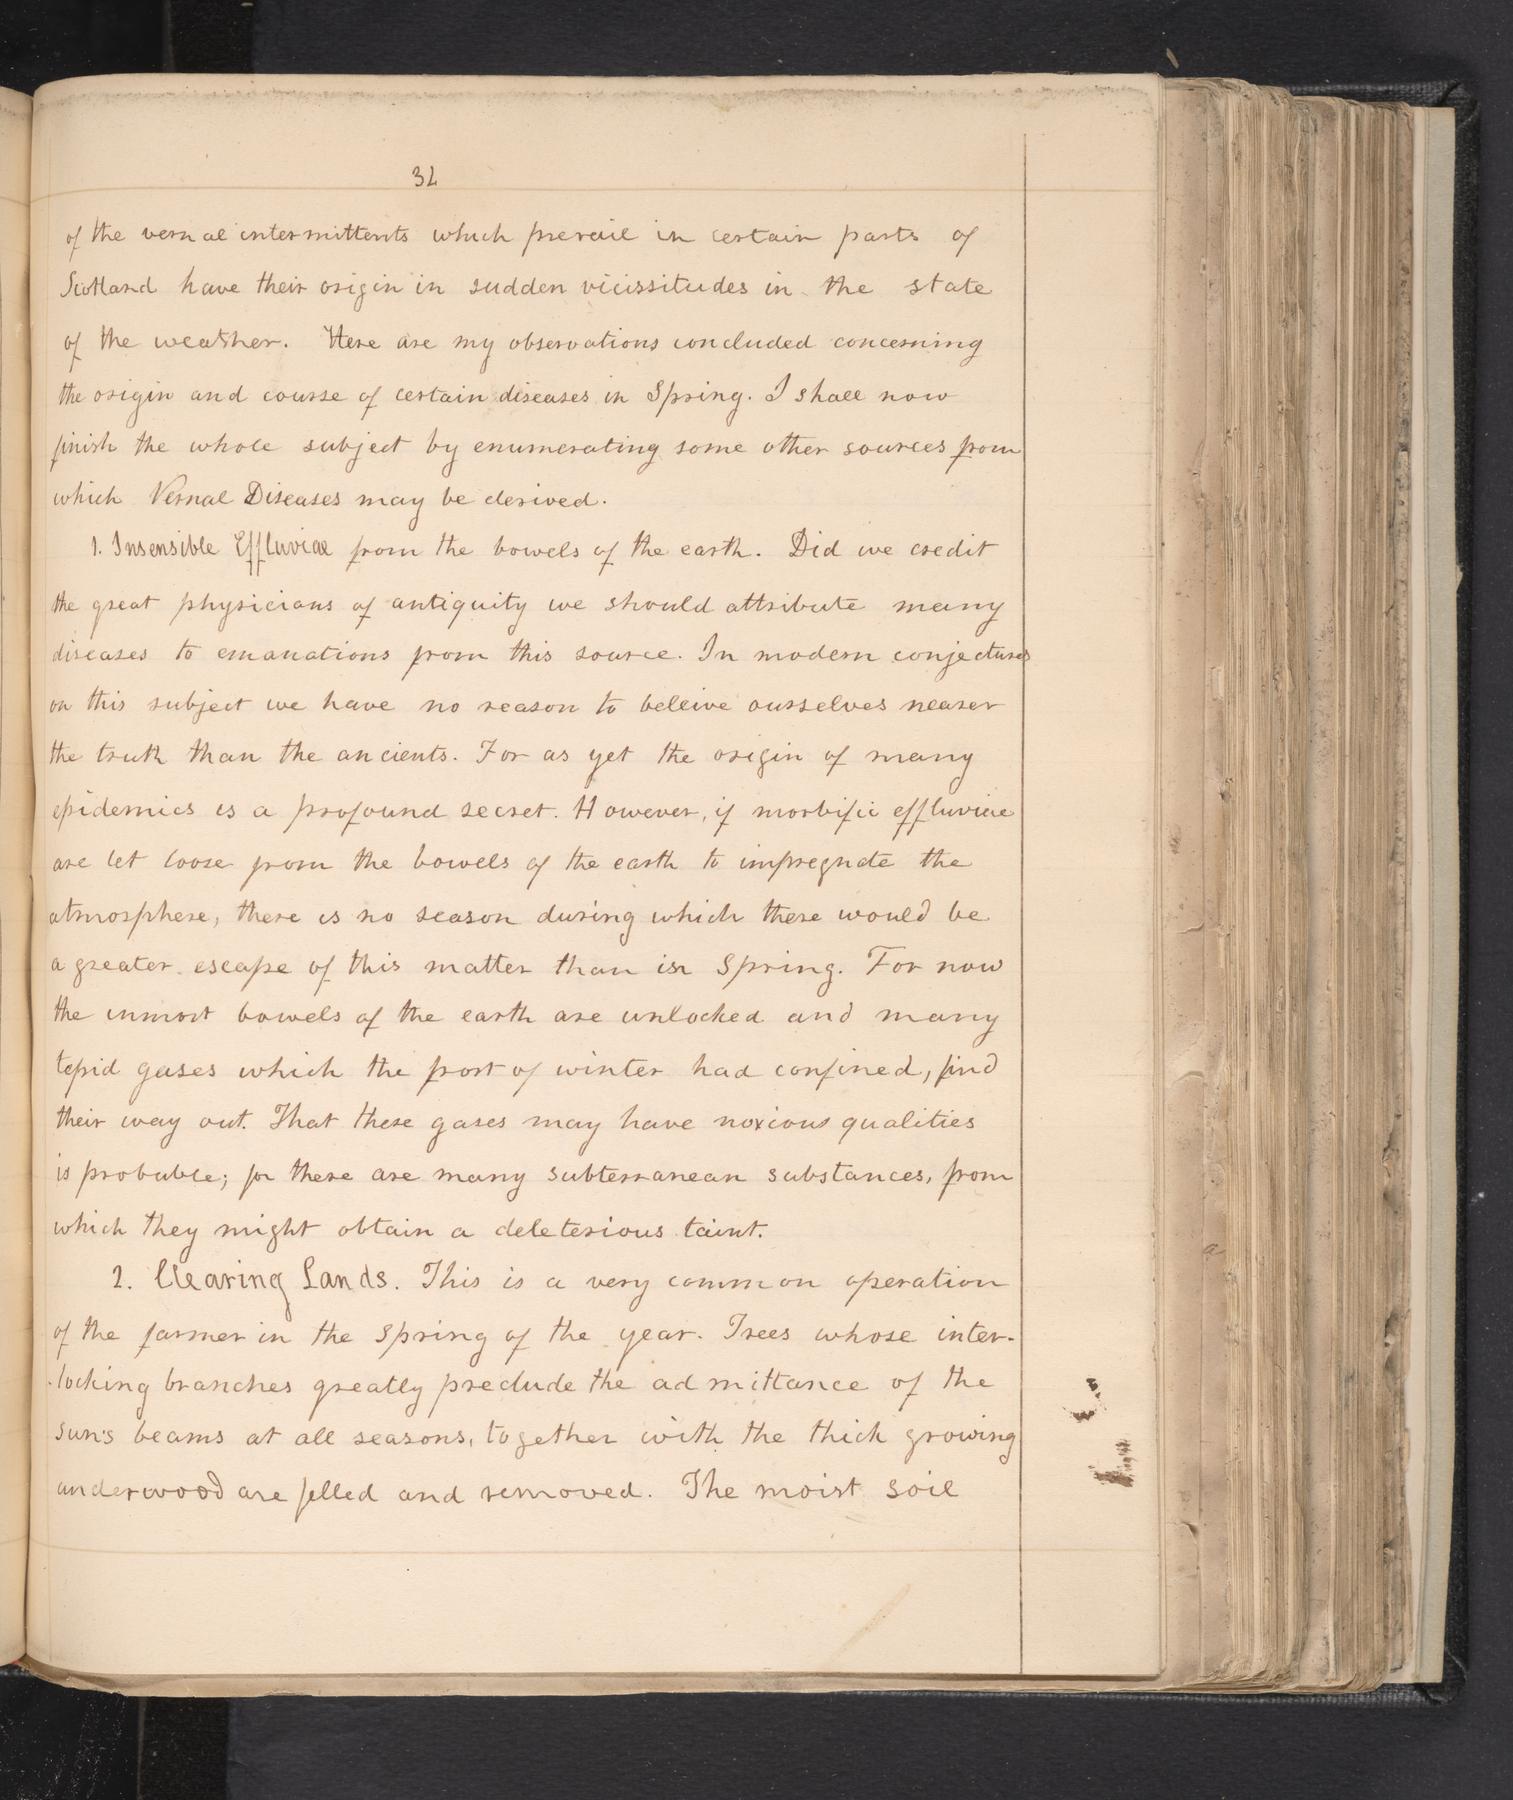 32
of the vernal intermittents which prevail in certain parts of
Scotland have their origin in sudden vicissitudes in the state
of the weather. Here are my observations concluded concerning
the origin and course of certain diseases in Spring. I shall now
finish the whole subject by enumerating some other sources from
which Vernal Diseases may be derived.
1. Insensible Effluviae from the bowels of the earth. Did we credit
the great physicians of antiquity we should attribute many
diseases to emanations from this source. In modern conjectures
on this subject we have no reason to beleive ourselves nearer
the truth than the ancients. For as yet the origin of many
epidemics is a profound secret. However, if morbific effluviae
are let loose from the bowels of the earth to impregnate the
atmosphere, there is no season during which there would be
a greater escape of this matter than in Spring. For now
the inmost bowels of the earth are unlocked and many
tepid gases which the frost of winter had confined, find
their way out. That these gases may have noxious qualities
is probable; for there are many subterranean substances, from
which they might obtain a deleterious taint.
2. Clearing Lands. This is a very common operation
of the farmer in the Spring of the year. Trees whose inter-
-locking branches greatly preclude the admittance of the
sun's beams at all seasons, together with the thick growing
underwood are felled and removed. The moist soil